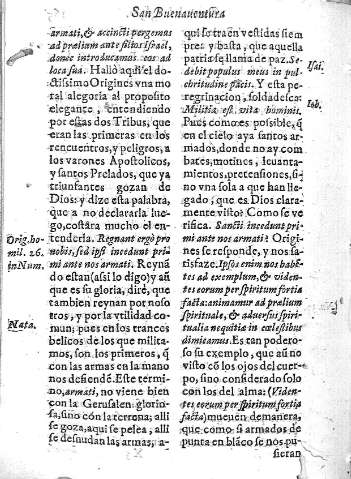 San Buenauentura
armati, & accincti pergemus
ad prælium ante filios Israel,
donec introducamus eos ad
loca sua. Hallò aqui el do-
ctissimo Origines vna mo-
ral alegoria al proposito
elegante, entendiendo
por essas dos Tribus, que
eran las primeras en los
rencuentros, y peligros, a
los varones Apostolicos,
y santos Prelados, que ya
triunfantes gozan de
Dios: y dize esta palabra,
que a no declararla lue-
go, costàra mucho el en-
tenderla. Regnant ergò pro
nobis, sed ipsi incedunt pri-
mi ante nos armati. Reynã-
do estan (assi lo digo) y aũ
que es su gloria, dirè, que
tambien reynan por noso
tros, y por la vtilidad co-
mun; pues en los trances
belicos de los que milita-
mos, son los primeros, q̃
con las armas en la mano
nos defiendẽ. Este termi-
no, armati, no viene bien
con la Gerusalen glorio-
sa, sino cõn la terrena; alli
se goza, aqui se pelea, alli
se desnudan las armas, a-
Orig. ho-
mil. 26.
in Num.
Nota.
qui los traen vestidas siem
pre: y basta, que aquella
patria se llama de paz. Se-
debit populus meus in pul-
chritudine pacis. Y esta pe-
regrinacion, soldadesca:
Militia est vita hominis.
Pues como es possible, q̃
en el cielo aya santos ar-
mados, donde no ay com-
bates, motines, leuanta-
mientos, pretensiones, si-
no vna sola a que han lle-
gado, que es Dios clara-
mente visto? Como se ve
rifica. Sancti incedunt pri-
mi ante nos armati? Origi-
nes se responde, y nos sa-
tisfaze. Ipsos enim nos habẽ-
tes ad exemplum, & viden-
tes eorum per spiritum fortia
facta: animamur ad prælium
spirituale, & aduersus spiri-
tualia nequitiæ in cœlestibus
dimicamus. Es tan podero-
so su exemplo, que aũ no
visto cõ los ojos del cuer-
po, sino considerado solo
con los del alma: (Viden-
tes eorum per spiritum fortia
facta) mueuen de manera,
que como si armados de
punta en blãco se nos pu-
sieran
Isai.
Iob.